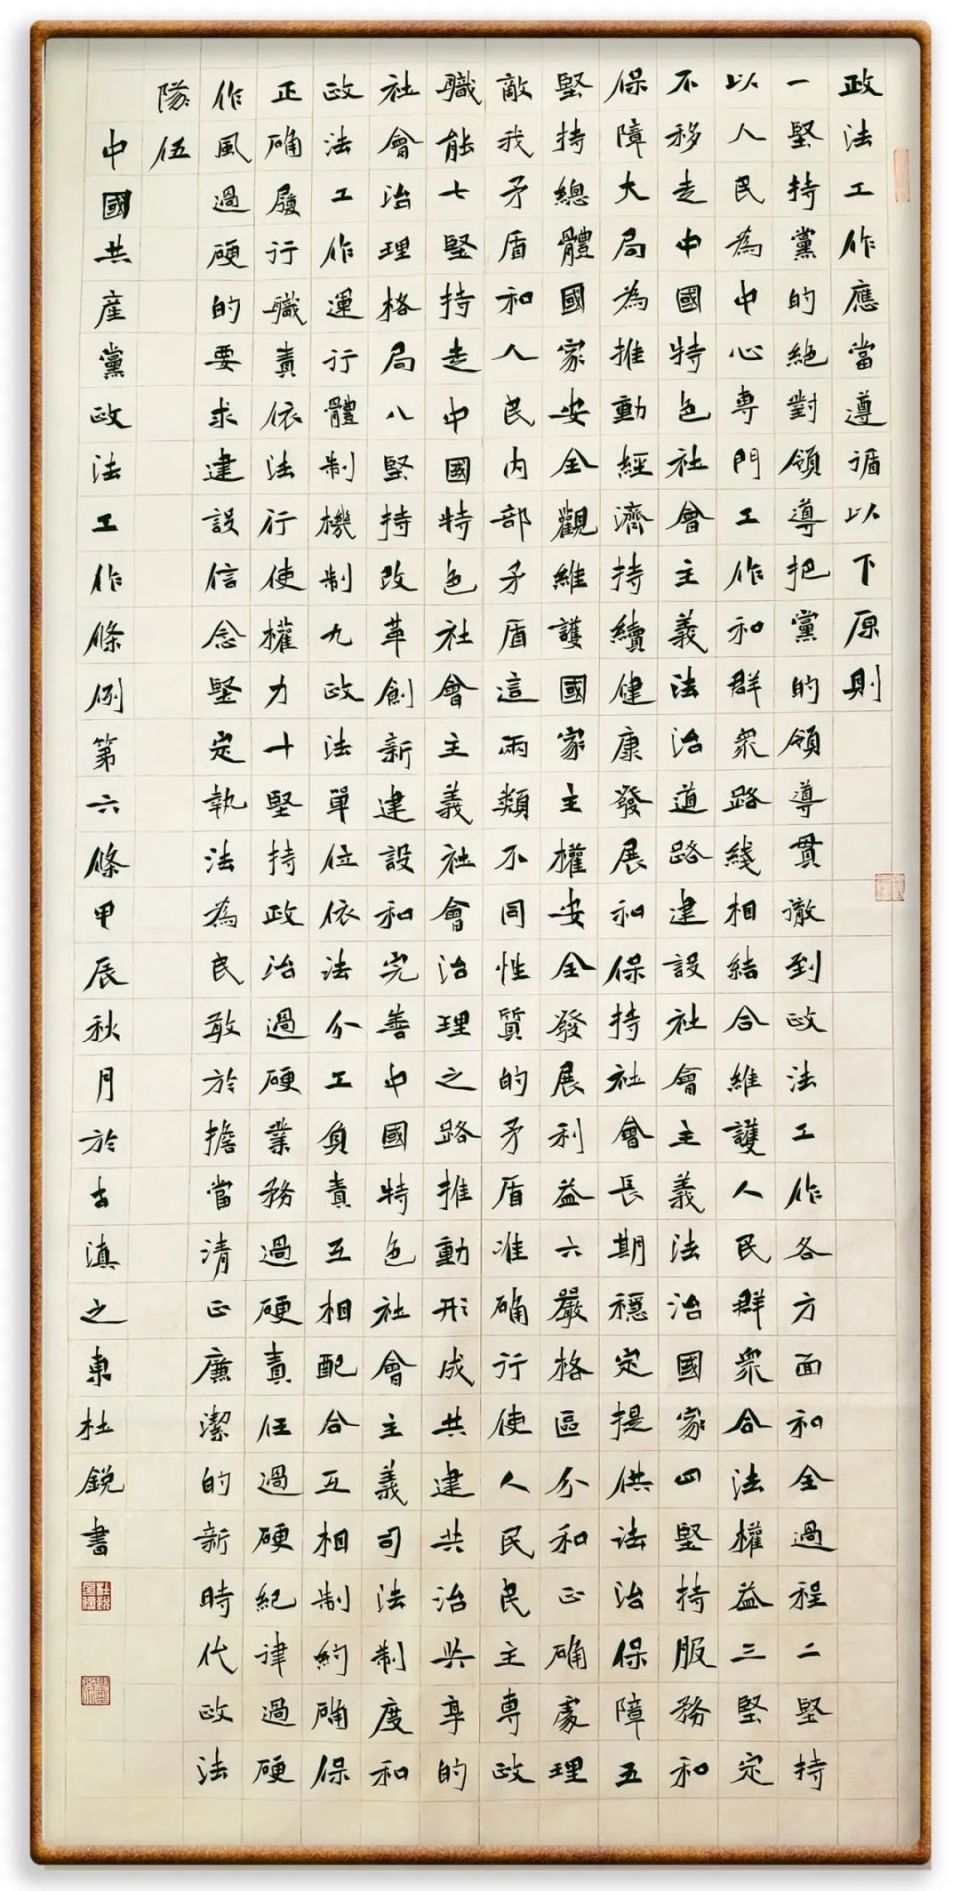 政法工作應當遵循以下原則
一堅持黨的絕對領導把黨的領導貫徹到政法工作各方面和全過程二堅持
以人民為中心專門工作和群衆路綫相結合維護人民群衆合法權益三堅定
不移走中國特色社會主義法治道路建設社會主義法治國家四堅持服務和
保障大局為推動經濟持續健康發展和保持社會長期穩定提供法治保障五
堅持總體國家安全觀維護國家主權安全發展利益六嚴格區分和正確處理
敵我矛盾和人民内部矛盾這兩類不同性質的矛盾准確行使人民民主專政
職能七堅持走中國特色社會主義社會治理之路推動形成共建共治共享的
社會治理格局八堅持改革創新建設和完善中國特色社會主義司法制度和
政法工作運行體制機制九政法單位依法分工負責互相配合互相制約確保
正確履行職責依法行使權力十堅持政治過硬業務過硬責任過硬紀律過硬
作風過硬的要求建設信念堅定執法為民敢於擔當清正廉潔的新時代政法
隊伍
中國共産黨政法工作條例第六條甲辰秋月於古滇之東杜鋭書